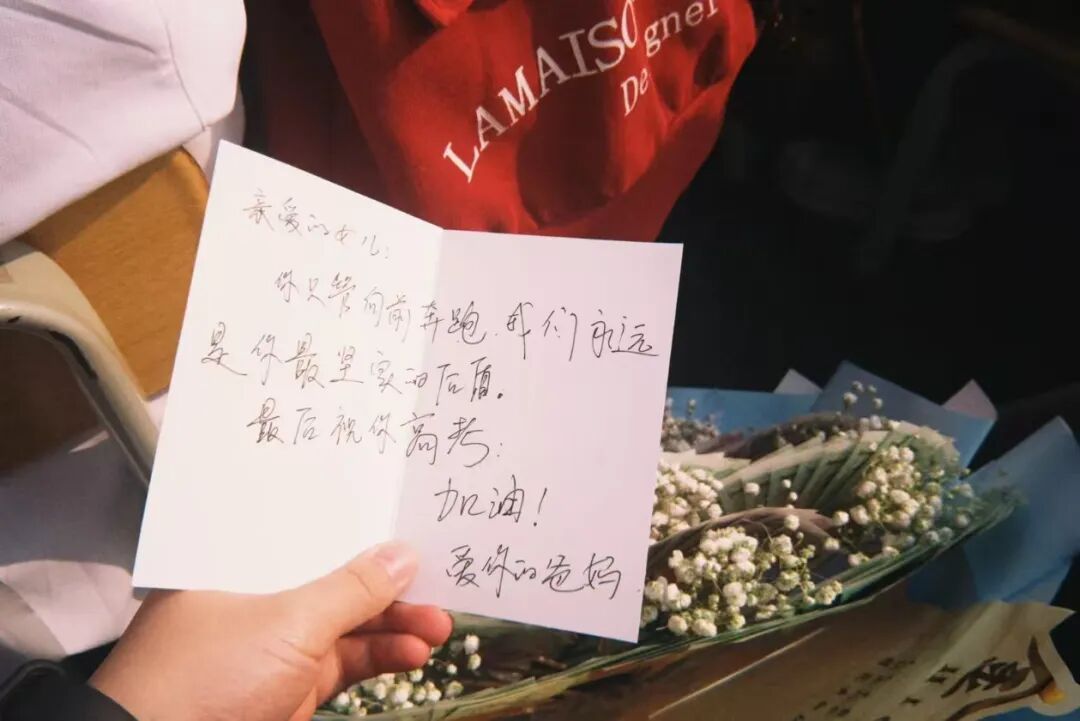 LAMAISO
Designer
亲爱的女儿：
你只管向前奔跑，我们永远
是你最坚实的后盾。
最后祝你高考：
加油！
爱你的爸妈.